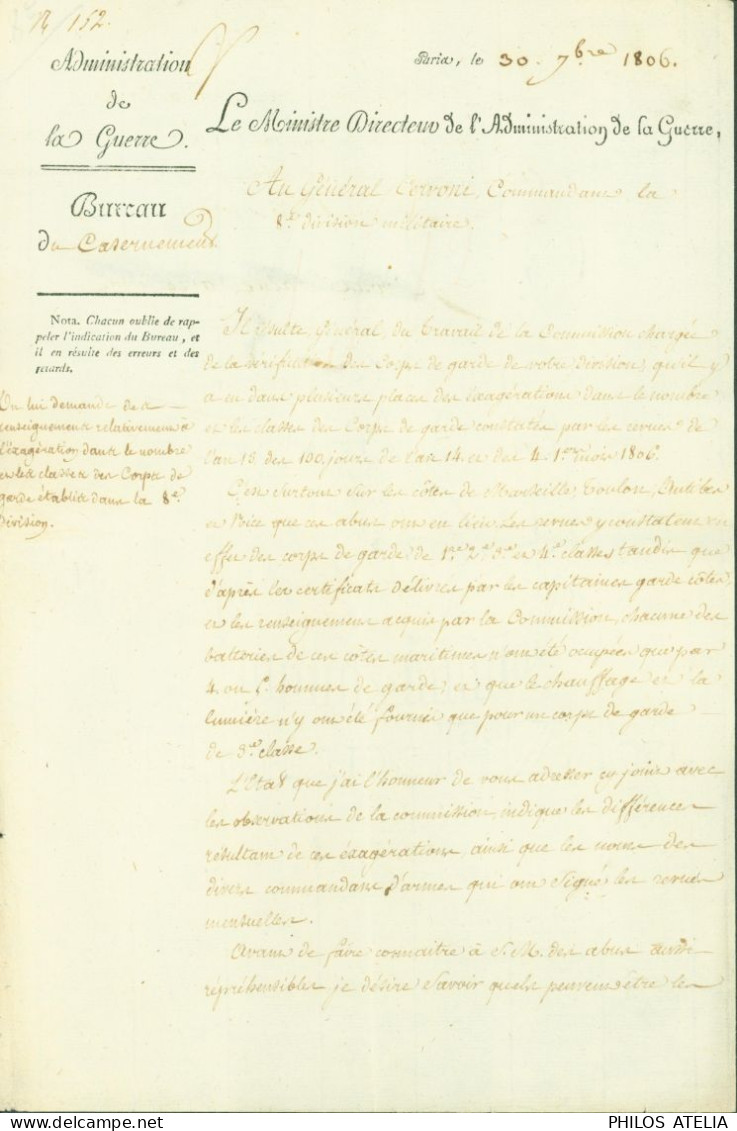 N 152.
Administration
de
la Guerre.
Bureau
du Casernement
Nota. Chacun oublie de rap-
peler l'indication du Bureau, et
il en résulte des erreurs et des
retards.
On lui demande des
renseignements relativement à
l'éxagération dans le nombre
et les classes des Corps de
garde établis dans la 8e.
Division.
Paris, le 30. 7bre 1806.
Le Ministre Directeur de l'Administration de la Guerre,
Au Général Cervoni, Commandant la
8e. division militaire.
Il résulte, Général, du travail de la Commission chargée
de la vérification des Corps de garde de votre Division, qu'il y
a eu dans plusieurs places des éxagérations dans le nombre
et les classes des Corps de garde constatés par les revues de
l'an 13. des 100 jours de l'an 14. et des 4. 1ers mois 1806.
C'est surtout sur les côtes de Marseille, Toulon, Antibes
et Nice que ces abus ont eu lieu. Les revues y constatent en
effet des corps de garde de 1re 2e 3e et 4e classes tandis que
d'après les certificats délivrés par les capitaines garde côtes
et les renseignements acquis par la Commission, chacune des
batteries de ces côtes maritimes n'ont été occupées que par
4. ou 5. hommes de garde, et que le chauffage et la
lumière n'y ont été fournis que pour un corps de garde
de 3e. classe.
L'Etat que j'ai l'honneur de vous adresser cy joint avec
les observations de la commission, indique les différences
résultant de ces éxagérations ainsi que les noms des
divers commandans d'armes qui ont signé les revues
mensuelles.
Avant de faire connaitre à S. M. des abus aussi
repréhensibles je désire savoir quels peuvent être les
PHILOS ATELIA